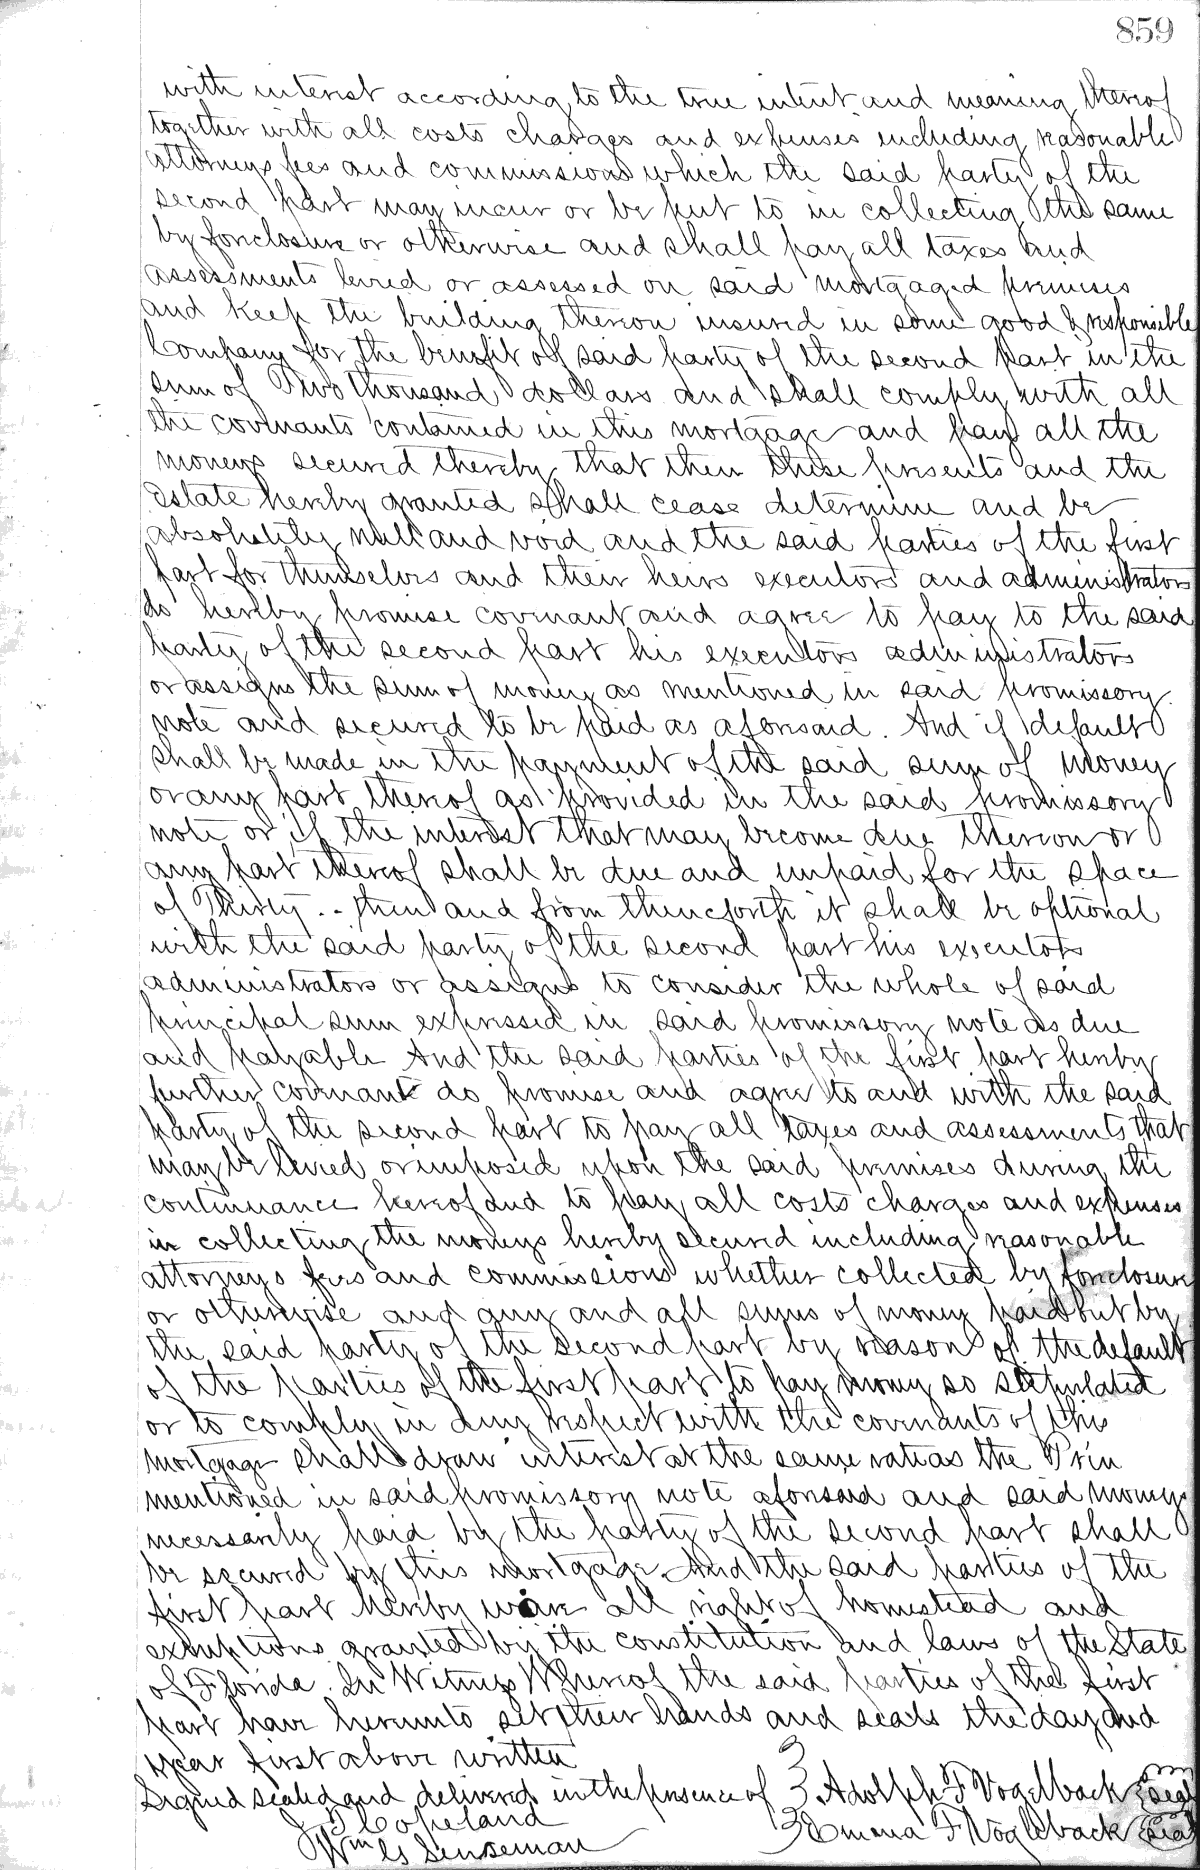 859
with interest according to the true intent and meaning thereof
together with all costs charges and expenses including reasonable
attorneys fees and commissions which the said party of the
second part may incur or be put to in collecting the same
by foreclosure or otherwise and shall pay all taxes and
assessments levied or assessed on said mortgaged premises
and keep the building thereon insured in some good & responsible
Company for the benefit of said party of the second part in the
sum of Two thousand dollars and shall comply with all
the covenants contained in this mortgage and pay all the
moneys secured thereby that then these presents and the
Estate hereby granted shall cease determine and be
absolutely null and void and the said parties of the first
part for themselves and their heirs executors and administrators
do hereby promise covenant and agree to pay to the said
party of the second part his executors administrators
or assigns the sum of money as mentioned in said promissory
note and secured to be paid as aforesaid. And if default
shall be made in the payment of the said sum of money
or any part thereof as provided in the said promissory
note or if the interest that may become due thereon or
any part thereof shall be due and unpaid for the space
of Thirty .. then and from thenceforth it shall be optional
with the said party of the second part his executors
administrators or assigns to consider the whole of said
principal sum expressed in said promissory note as due
and payable And the said parties of the first part hereby
further covenant do promise and agree to and with the said
party of the second part to pay all taxes and assessments that
may be levied or imposed upon the said premises during the
continuance hereof and to pay all costs charges and expenses
in collecting the moneys hereby secured including reasonable
attorneys fees and commissions whether collected by foreclosure
or otherwise and any and all sums of money paid out by
the said party of the second part by reason of the default
of the parties of the first part to pay money so stipulated
or to comply in any respect with the covenants of this
mortgage shall draw interest at the same rate as the Prin
mentioned in said promissory note aforesaid and said moneys
necessarily paid by the party of the second part shall
be secured by this mortgage. And the said parties of the
first part hereby waive all right of homestead and
exemptions granted by the constitution and laws of the State
of Florida. In Witness Whereof the said parties of the first
part have hereunto set their hands and seals the day and
year first above written
Signed sealed and delivered in the presence of Adolph F Vogelback seal
J T Copeland
Emma F Voglback seal
Wm G Senseman